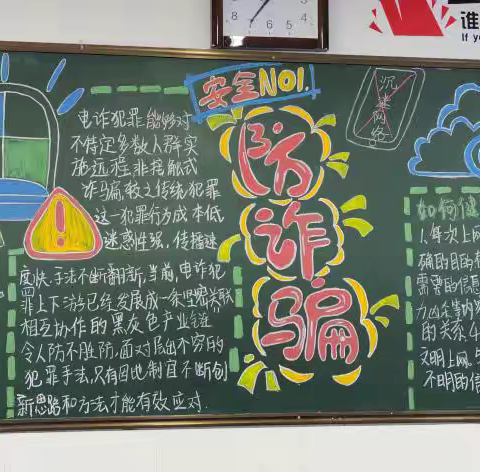 谁
If y
8
7
6
5
4
安全NO1.
防
诈
骗
沉
迷
网
络
电诈犯罪能够对
不特定多数人群实
施远程非接触式
诈骗,较之传统犯罪
这一犯罪行为成本低
迷惑性强、传播速
度快、手法不断翻新,当前,电诈犯
罪上下游已经发展成一条坚密关联
相互协作的黑灰色产业链
令人防不胜防,面对层出不穷的
犯罪手法,只有因地制宜不断创
新思路和方法才能有效应对.
如何
1.每次上网
确的目的
需要的信息
的关系.4
文明上网.
不明的信